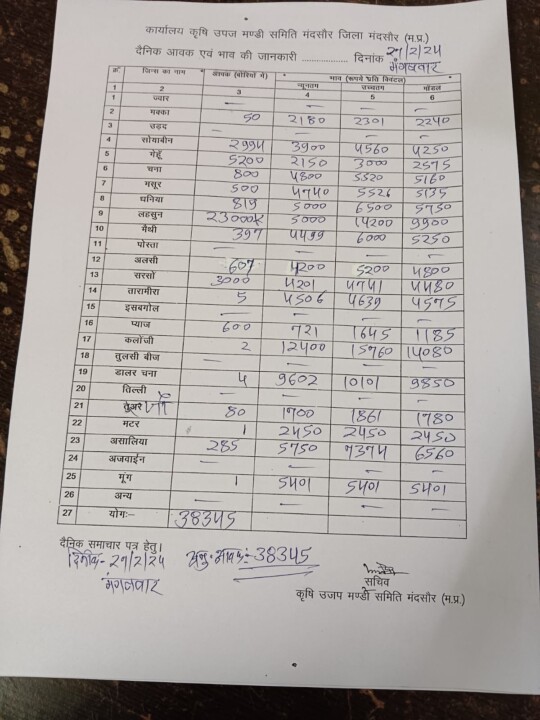 कार्यालय कृषि उपज मण्डी समिति मंदसौर जिला मंदसौर (म.प्र.)
दैनिक आवक एवं भाव की जानकारी .................. दिनांक 27/2/24
मंगलवार
क्र. जिन्स का नाम आवक (बोरियों में) भाव (रूपये प्रति क्विंटल)
न्यूनतम उच्चतम मॉडल
1 2 3 4 5 6
1 ज्वार — — — —
2 मक्का 50 2180 2301 2240
3 उड़द — — — —
4 सोयाबीन 2994 3900 4560 4250
5 गेहूँ 5200 2150 3000 2575
6 चना 800 4800 5520 5160
7 मसूर 500 4740 5526 5135
8 धनिया 819 5000 6500 5750
9 लहसुन 23000 5000 14200 9900
10 मैथी 397 4499 6000 5250
11 पोस्ता — — — —
12 अलसी 607 4200 5200 4800
13 सरसों 3000 4201 4741 4480
14 तारामीरा 5 4506 4639 4575
15 इसबगोल — — — —
16 प्याज 600 721 1645 1185
17 कलोंजी 2 12400 15760 14080
18 तुलसी बीज — — — —
19 डालर चना 4 9602 10101 9850
20 तिल्ली — — — —
21 जौ 80 1700 1861 1780
22 मटर 1 2450 2450 2450
23 असालिया 285 5750 7374 6560
24 अजवाईन — — — —
25 मूंग 1 5401 5401 5401
26 अन्य — — — —
27 योगः- 38345
दैनिक समाचार पत्र हेतु।
दिनांक- 27/2/24 आवक:- 38345
मंगलवार
सचिव
कृषि उजप मण्डी समिति मंदसौर (म.प्र.)